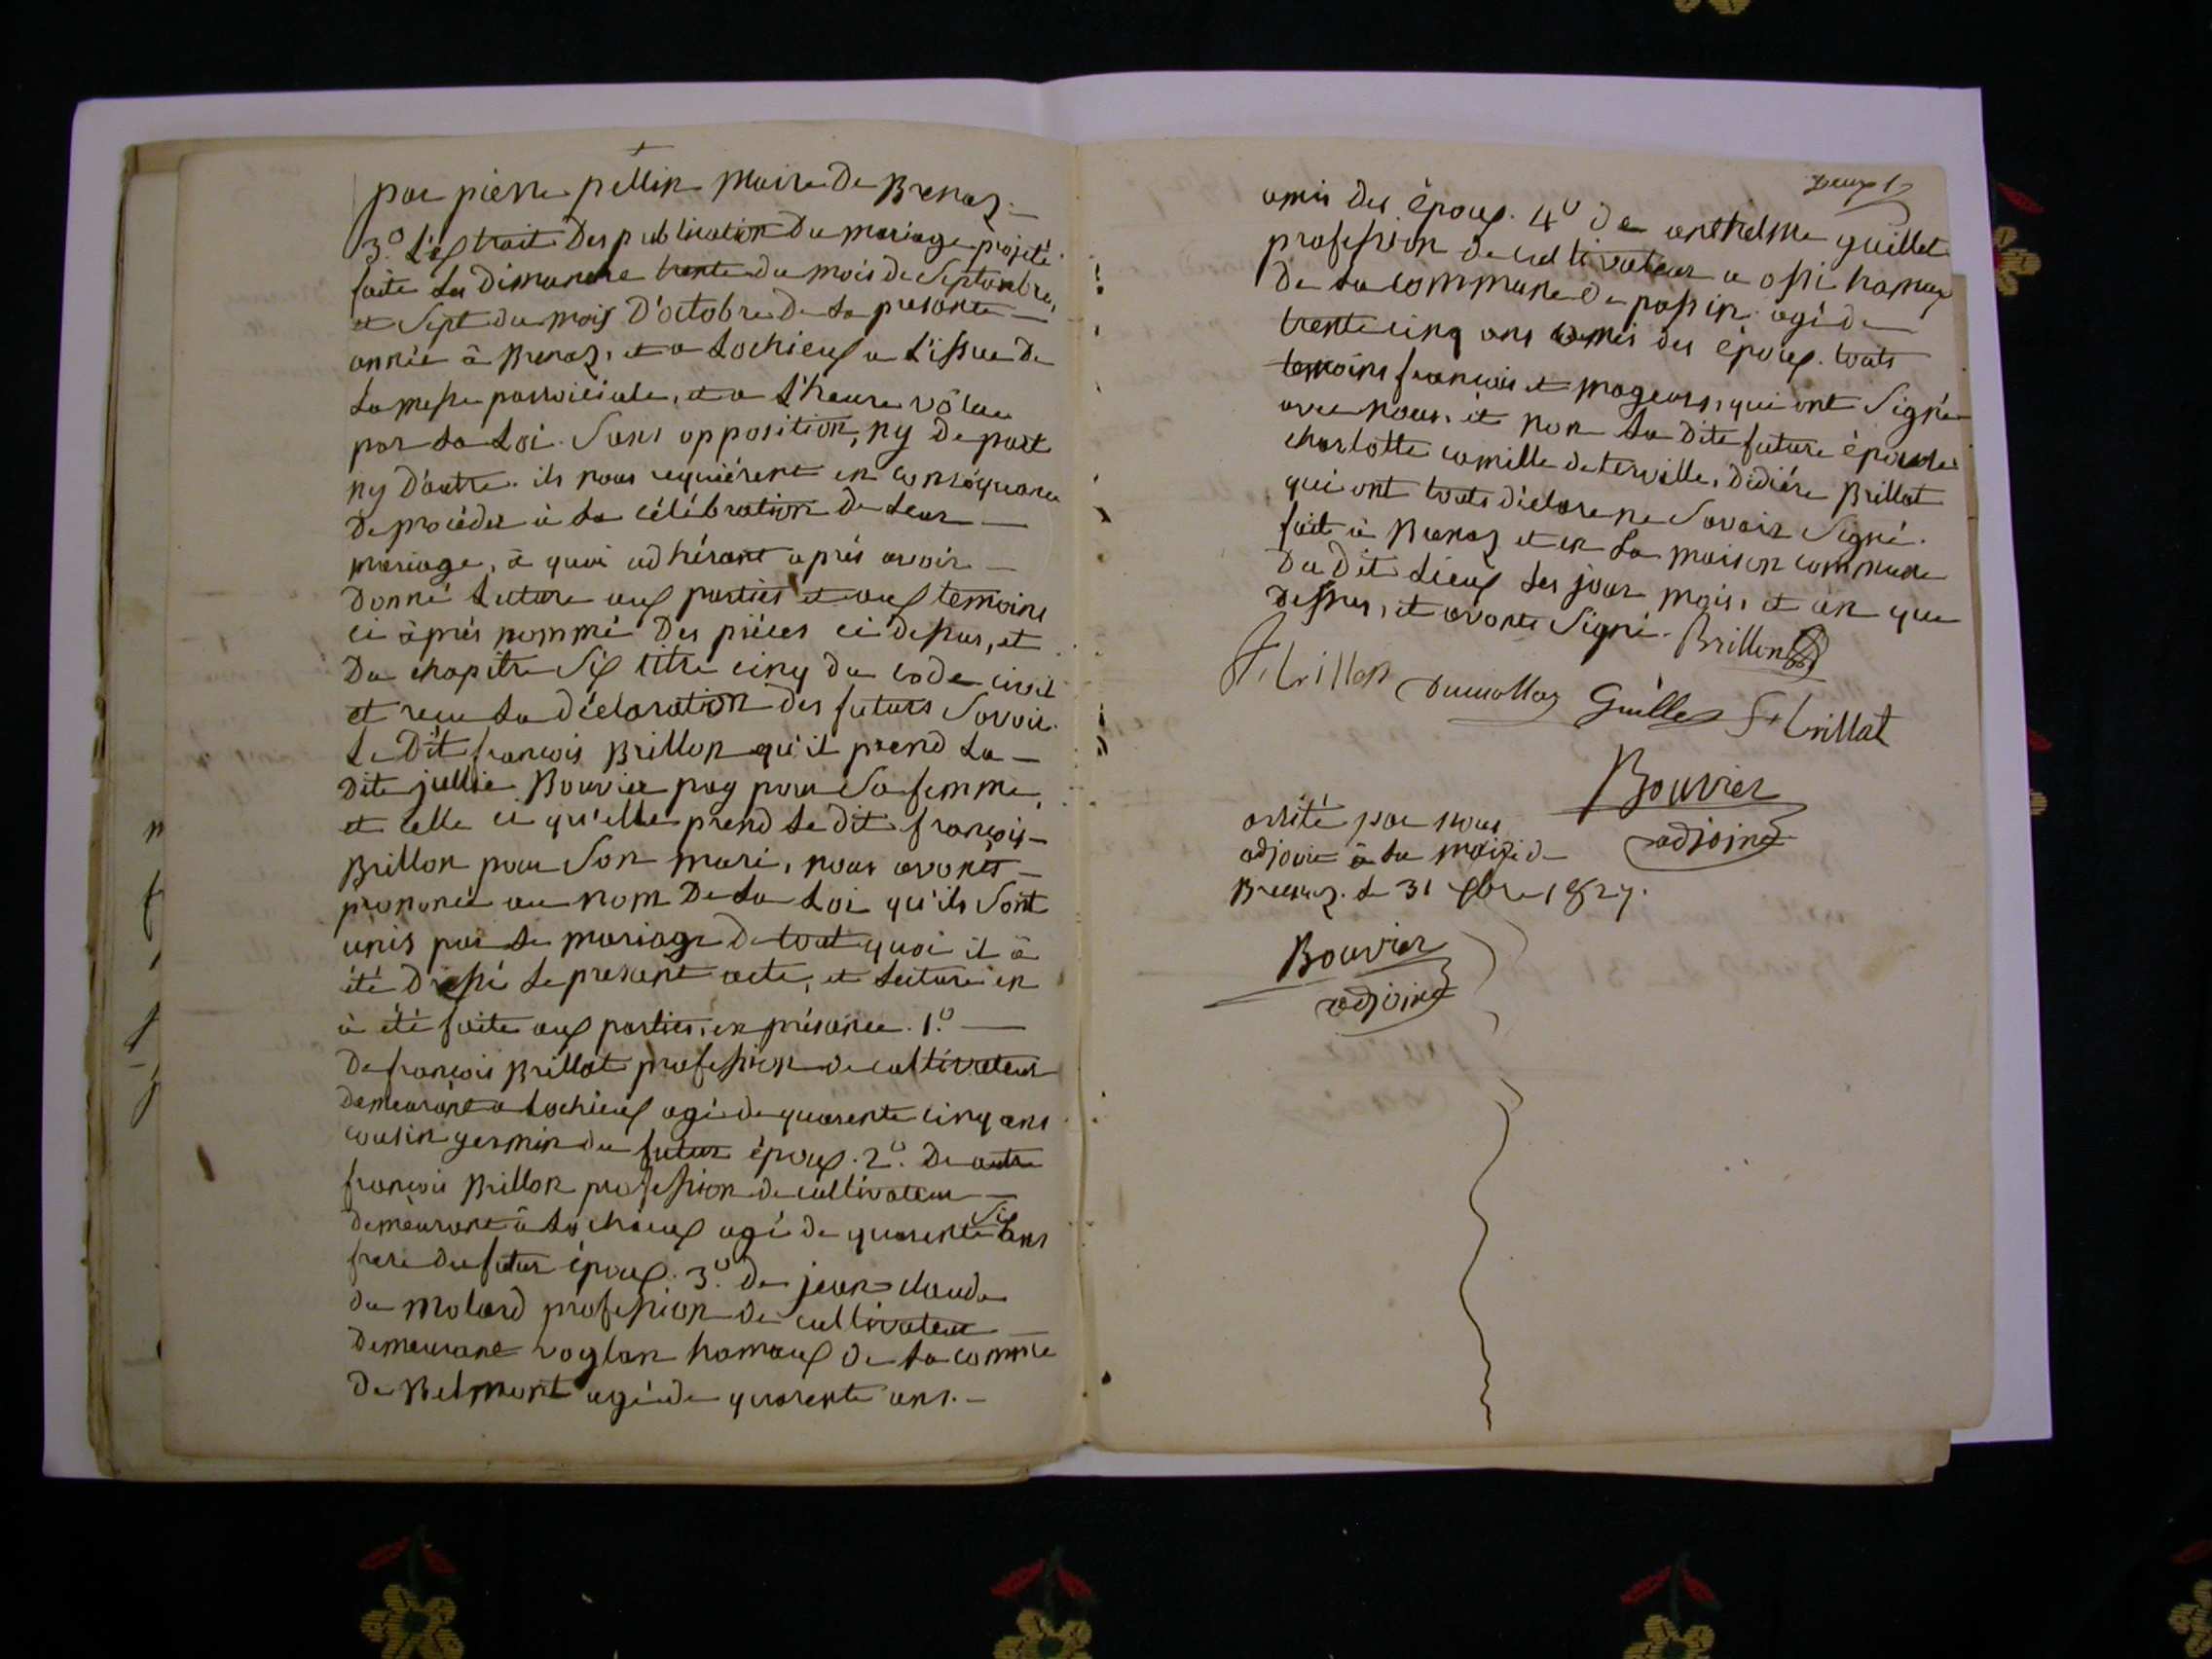 par pierre pellin Maire De Brenaz.
3.º L'extrait Des publication Du mariage projeté
faite Les Dimanche trente du mois de Septembre,
et Sept du mois D'octobre De La presante
année à Brenaz, et a Lochieux a l'issue De
La messe parroiciale, et a L'heure vôlue
par La Loi. Sans opposition, ny De part
ny D'autre. ils nous requiérent en conséquance
De procéder à La célébration De Leur
mariage, à quoi adhérant après avoir
Donné Lecture aux parties et aux temoins
ci àprés nommé Des piéces ci Dessus, et
Du chapitre Six titre cinq du code civil
et reçu La Déclaration Des futurs Savoir.
Le Dit françois Brillon qu'il prend La
Dite jullie Bouvier pag pour Sa femme,
et celle ci qu'elle prend Le Dit françois
Brillon pour Son mari, nous avonts
prononcé au nom De La Loi qu'ils Sont
unis par Le mariage De tout quoi il à
été Dressé Le presant acte, et Lecture en
à été faite aux parties, en présance. 1.º
De françois Brillat profession de cultivateur
Demeurant a Lochieux agé de quarente cinq ans
cousin germin du futur époux. 2.º De autre
françois Brillon profession de cultivateur
Demeurant à Lochieux agé de quarente Six ans
frere du futur époux. 3.º De jean=claude
du Molard profession De cultivateur
Demeurant voglan hamaux De La comme
De Belmont agé de quarente ans.
amis des époux. 4º De anthelme guillet
profession de cultivateur a ossi hamaux
De La commune De passin agé de
trente cinq ans amis des époux. touts
temoins francois et mageurs, qui ont Signé
avec nous, et non La Dite future épouse
charlotte camille deterville, didiére Brillat
qui ont touts déclare ne Savoir Signé.
fait à Brenaz et en La maison commune
Du Dit Lieux Les jour mois, et an que
Dessus, et avonts Signé. Brillon
f. brillon Dumollar Guillet f. brillat
Bouvier
adjoint
arrité par nous
adjoint à La mairie de
Brenaz. Le 31 Xbre 1827.
Bouvier
adjoint